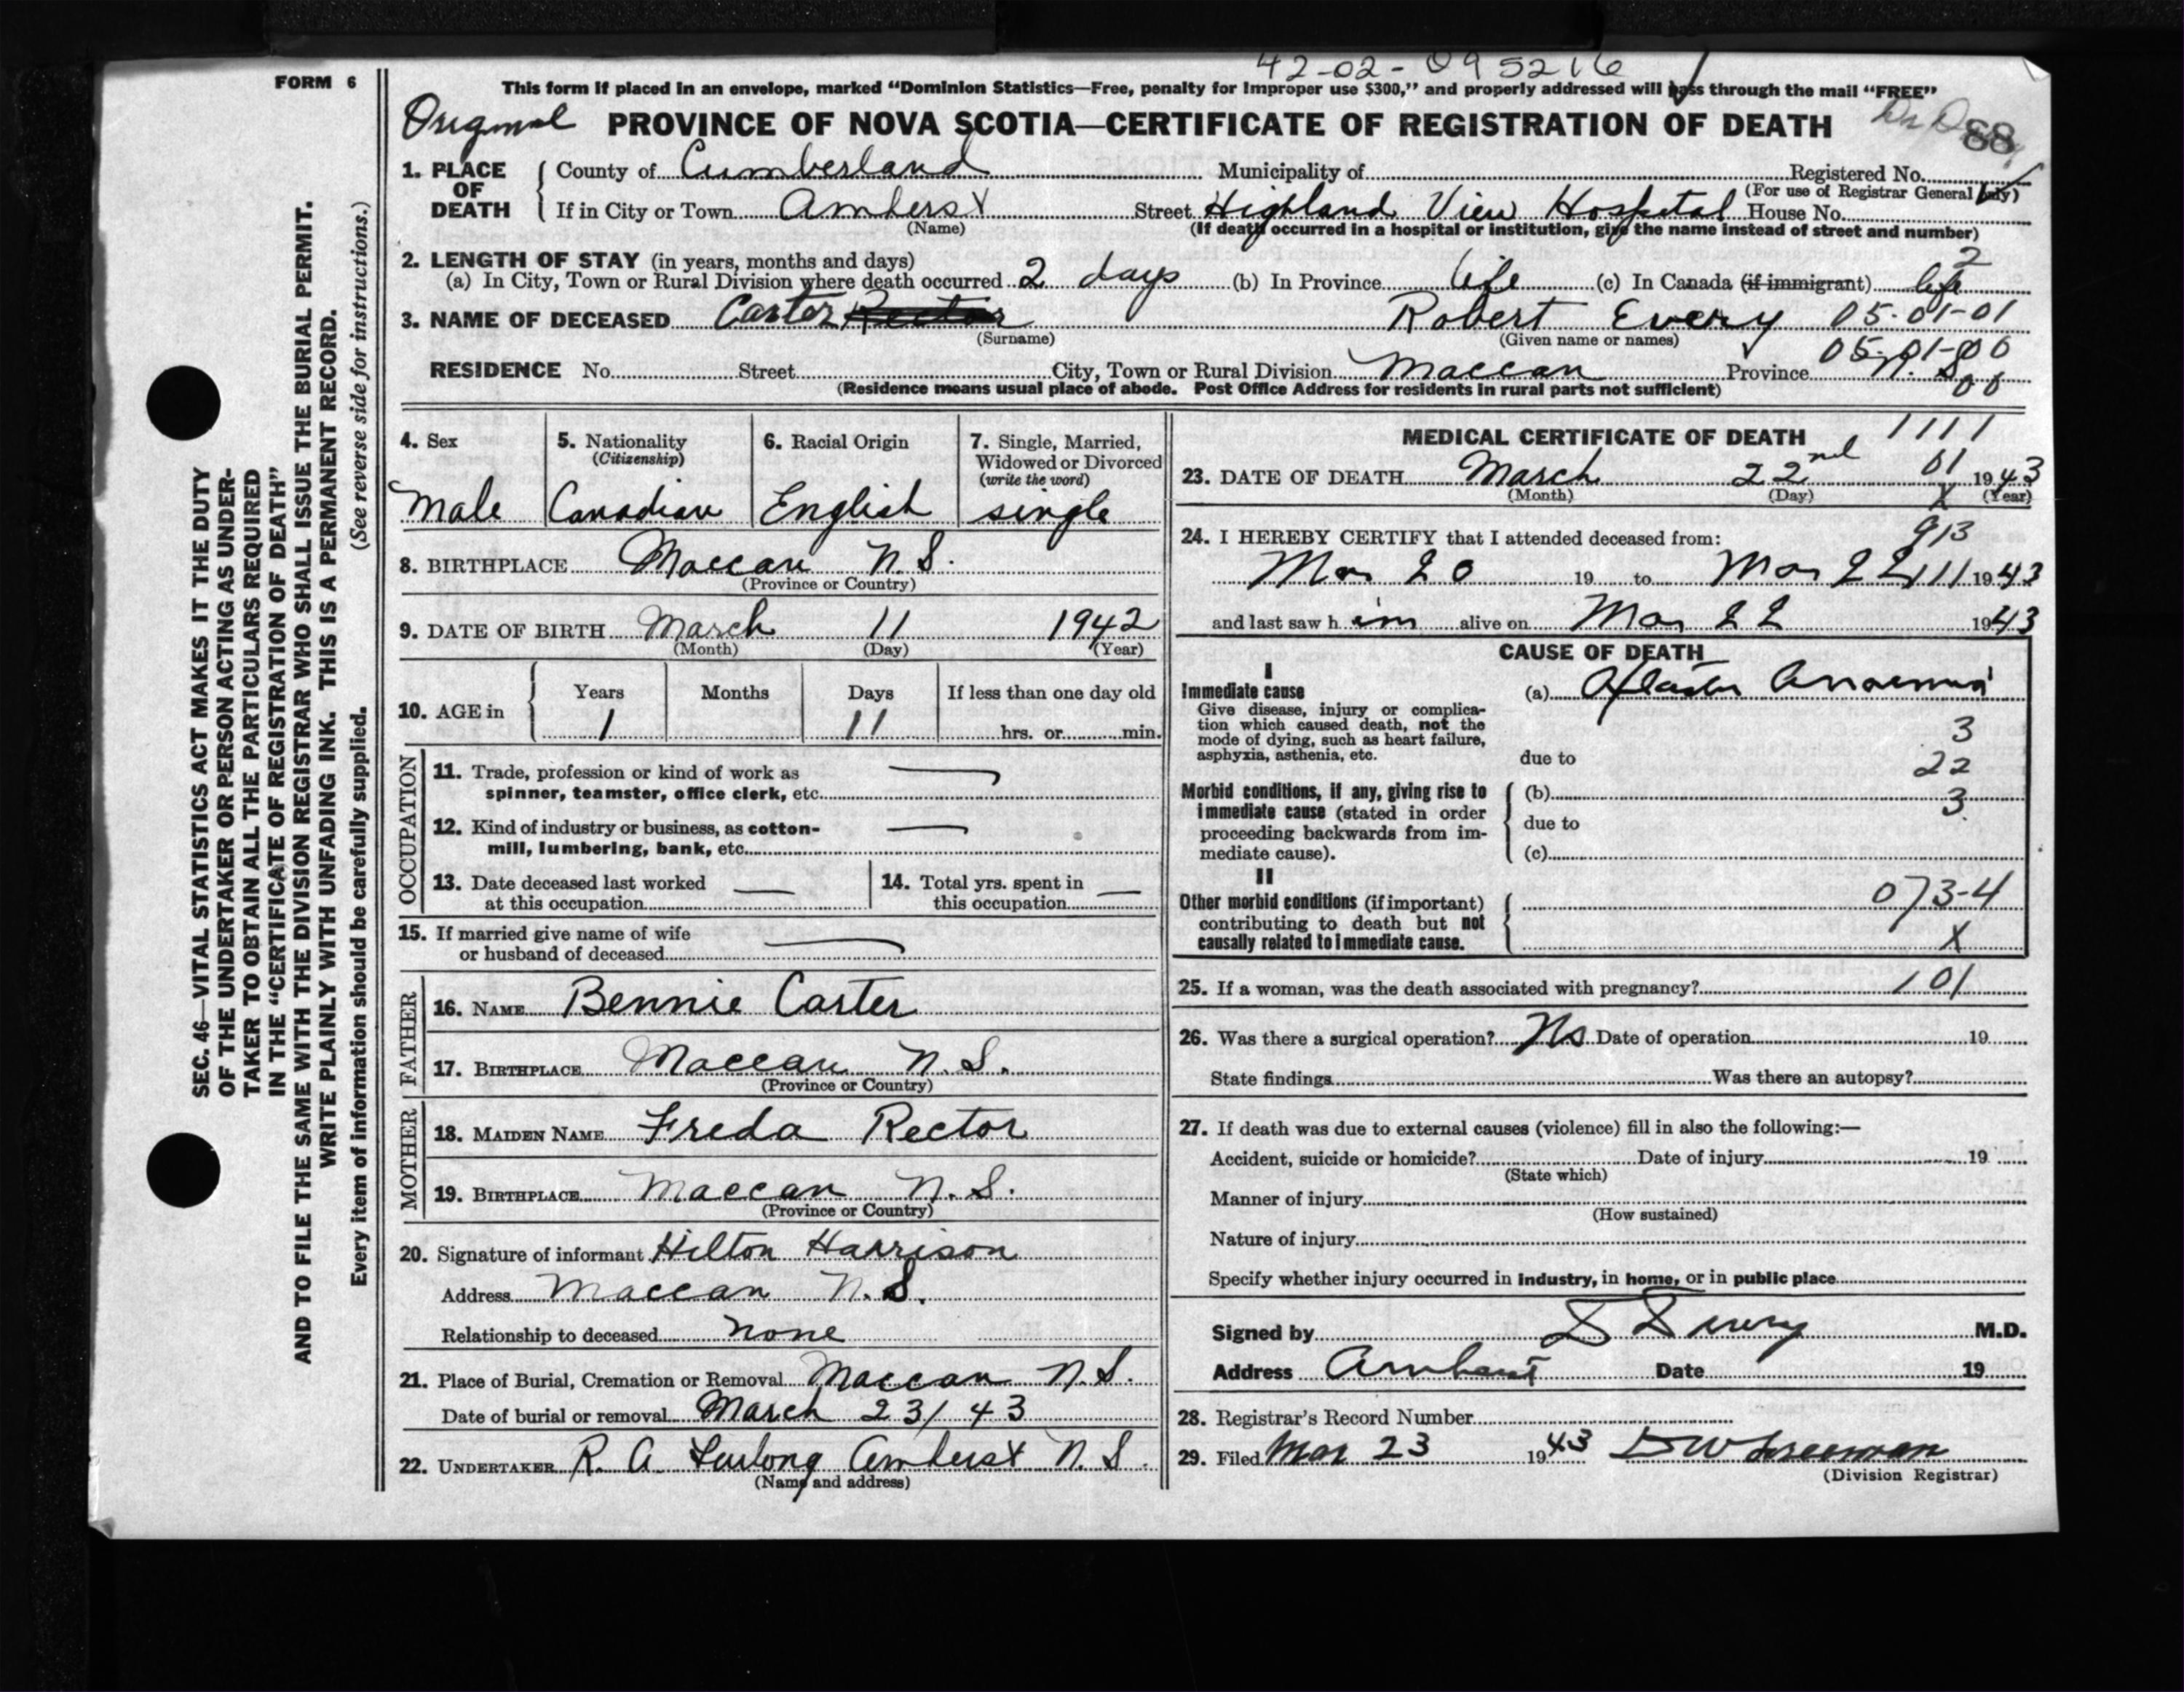 FORM 6
42-02-095216
This form if placed in an envelope, marked “Dominion Statistics—Free, penalty for improper use $300,” and properly addressed will pass through the mail “FREE”
Original PROVINCE OF NOVA SCOTIA—CERTIFICATE OF REGISTRATION OF DEATH 88
1. PLACE OF DEATH
County of Cumberland Municipality of Registered No.
(For use of Registrar General only)
If in City or Town Amherst Street Highland View Hospital House No.
(Name) (If death occurred in a hospital or institution, give the name instead of street and number)
2. LENGTH OF STAY (in years, months and days) 2
(a) In City, Town or Rural Division where death occurred 2 days (b) In Province life (c) In Canada (if immigrant) life
3. NAME OF DECEASED Carter Rector Robert Every 05-01-01
(Surname) (Given name or names)
05-01-00
RESIDENCE No. Street City, Town or Rural Division Maccan Province N. S.
00
(Residence means usual place of abode. Post Office Address for residents in rural parts not sufficient)
4. Sex
Male
5. Nationality
(Citizenship)
Canadian
6. Racial Origin
English
7. Single, Married,
Widowed or Divorced
(write the word)
single
8. BIRTHPLACE Maccan N. S.
(Province or Country)
9. DATE OF BIRTH March 11 1942
(Month) (Day) (Year)
10. AGE in
Years Months Days If less than one day old
1 11 hrs. or min.
OCCUPATION
11. Trade, profession or kind of work as
spinner, teamster, office clerk, etc. —
12. Kind of industry or business, as cotton-
mill, lumbering, bank, etc. —
13. Date deceased last worked
at this occupation —
14. Total yrs. spent in
this occupation —
15. If married give name of wife
or husband of deceased —
FATHER
16. NAME Bennie Carter
17. BIRTHPLACE Maccan N. S.
(Province or Country)
MOTHER
18. MAIDEN NAME Freda Rector
19. BIRTHPLACE Maccan N. S.
(Province or Country)
20. Signature of informant Hilton Harrison
Address Maccan N. S.
Relationship to deceased none
21. Place of Burial, Cremation or Removal Maccan N. S.
Date of burial or removal March 23/43
22. UNDERTAKER R. A. Furlong Amherst N. S.
(Name and address)
MEDICAL CERTIFICATE OF DEATH 1111
23. DATE OF DEATH March 22nd 01 1943
(Month) (Day) X (Year)
24. I HEREBY CERTIFY that I attended deceased from: 913
Mar 20 19 to Mar 22 111 1943
and last saw h im alive on Mar 22 1943
CAUSE OF DEATH
I
Immediate cause
Give disease, injury or complica-
tion which caused death, not the
mode of dying, such as heart failure,
asphyxia, asthenia, etc.
(a) Anaemia
3
due to
22
Morbid conditions, if any, giving rise to
immediate cause (stated in order
proceeding backwards from im-
mediate cause).
(b) 3
due to
(c)
II
Other morbid conditions (if important)
contributing to death but not
causally related to immediate cause.
073-4
X
25. If a woman, was the death associated with pregnancy? 101
26. Was there a surgical operation? No Date of operation 19
State findings Was there an autopsy?
27. If death was due to external causes (violence) fill in also the following:—
Accident, suicide or homicide? Date of injury 19
(State which)
Manner of injury
(How sustained)
Nature of injury
Specify whether injury occurred in industry, in home, or in public place
Signed by M.D.
Address Amherst Date 19
28. Registrar's Record Number
29. Filed Mar 23 1943
(Division Registrar)
SEC. 46—VITAL STATISTICS ACT MAKES IT THE DUTY
OF THE UNDERTAKER OR PERSON ACTING AS UNDER-
TAKER TO OBTAIN ALL THE PARTICULARS REQUIRED
IN THE “CERTIFICATE OF REGISTRATION OF DEATH”
AND TO FILE THE SAME WITH THE DIVISION REGISTRAR WHO SHALL ISSUE THE BURIAL PERMIT.
WRITE PLAINLY WITH UNFADING INK. THIS IS A PERMANENT RECORD.
Every item of information should be carefully supplied. (See reverse side for instructions.)